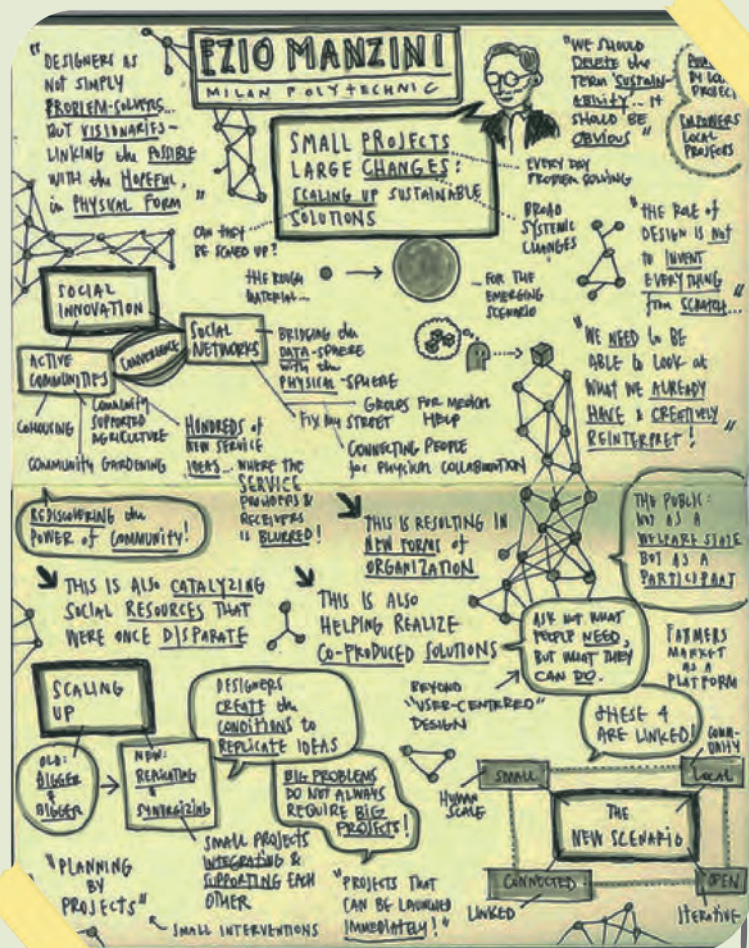 EZIO MANZINI
MILAN POLYTECHNIC
"DESIGNERS AS
NOT SIMPLY
PROBLEM-SOLVERS...
BUT VISIONARIES-
LINKING the POSSIBLE
WITH the HOPEFUL,
in PHYSICAL FORM"
SMALL PROJECTS
LARGE CHANGES:
SCALING UP SUSTAINABLE
SOLUTIONS
EVERY DAY
PROBLEM SOLVING
BROAD
SYSTEMIC
CHANGES
CAN THEY
BE SCALED UP?
"WE SHOULD
DELETE the
TERM 'SUSTAIN-
ABILITY'... IT
SHOULD BE
OBVIOUS"
BY
PROJECT
EMPOWERS
LOCAL
PROJECTS
THE ROUGH
MATERIAL...
...FOR THE
EMERGING
SCENARIO
"THE ROLE of
DESIGN IS NOT
to INVENT
EVERYTHING
from SCRATCH...
"WE NEED to BE
ABLE to LOOK at
WHAT WE ALREADY
HAVE & CREATIVELY
REINTERPRET!"
SOCIAL
INNOVATION
CONVERGENCE
SOCIAL
NETWORKS
ACTIVE
COMMUNITIES
BRIDGING the
DATA-SPHERE
WITH the
PHYSICAL-SPHERE
GROUPS FOR MEDICAL
HELP
FIX MY STREET
CONNECTING PEOPLE
for PHYSICAL COLLABORATION
COHOUSING
COMMUNITY
SUPPORTED
AGRICULTURE
COMMUNITY GARDENING
HUNDREDS of
NEW SERVICE
IDEAS... WHERE THE
SERVICE
PROVIDERS &
RECEIVERS
is BLURRED!
REDISCOVERING the
POWER of COMMUNITY!
THIS IS RESULTING IN
NEW FORMS of
ORGANIZATION
THE PUBLIC:
NOT AS A
WELFARE STATE
BUT AS A
PARTICIPANT
THIS IS ALSO CATALYZING
SOCIAL RESOURCES THAT
WERE ONCE DISPARATE
THIS IS ALSO
HELPING REALIZE
CO-PRODUCED SOLUTIONS
ASK NOT WHAT
PEOPLE NEED,
BUT WHAT THEY
CAN DO.
BEYOND
"USER-CENTERED"
DESIGN
FARMERS
MARKET
AS A
PLATFORM
SCALING
UP
OLD:
BIGGER
&
BIGGER
NEW:
REPLICATING
&
SYNERGIZING
DESIGNERS
CREATE the
CONDITIONS to
REPLICATE IDEAS
BIG PROBLEMS
DO NOT ALWAYS
REQUIRE BIG
PROJECTS!
SMALL PROJECTS
INTEGRATING &
SUPPORTING EACH
OTHER
"PLANNING
BY
PROJECTS"
SMALL INTERVENTIONS
"PROJECTS THAT
CAN BE LAUNCHED
IMMEDIATELY!"
THESE 4
ARE LINKED!
SMALL
HUMAN
SCALE
COMM-
UNITY
LOCAL
THE
NEW SCENARIO
CONNECTED
LINKED
OPEN
ITERATIVE